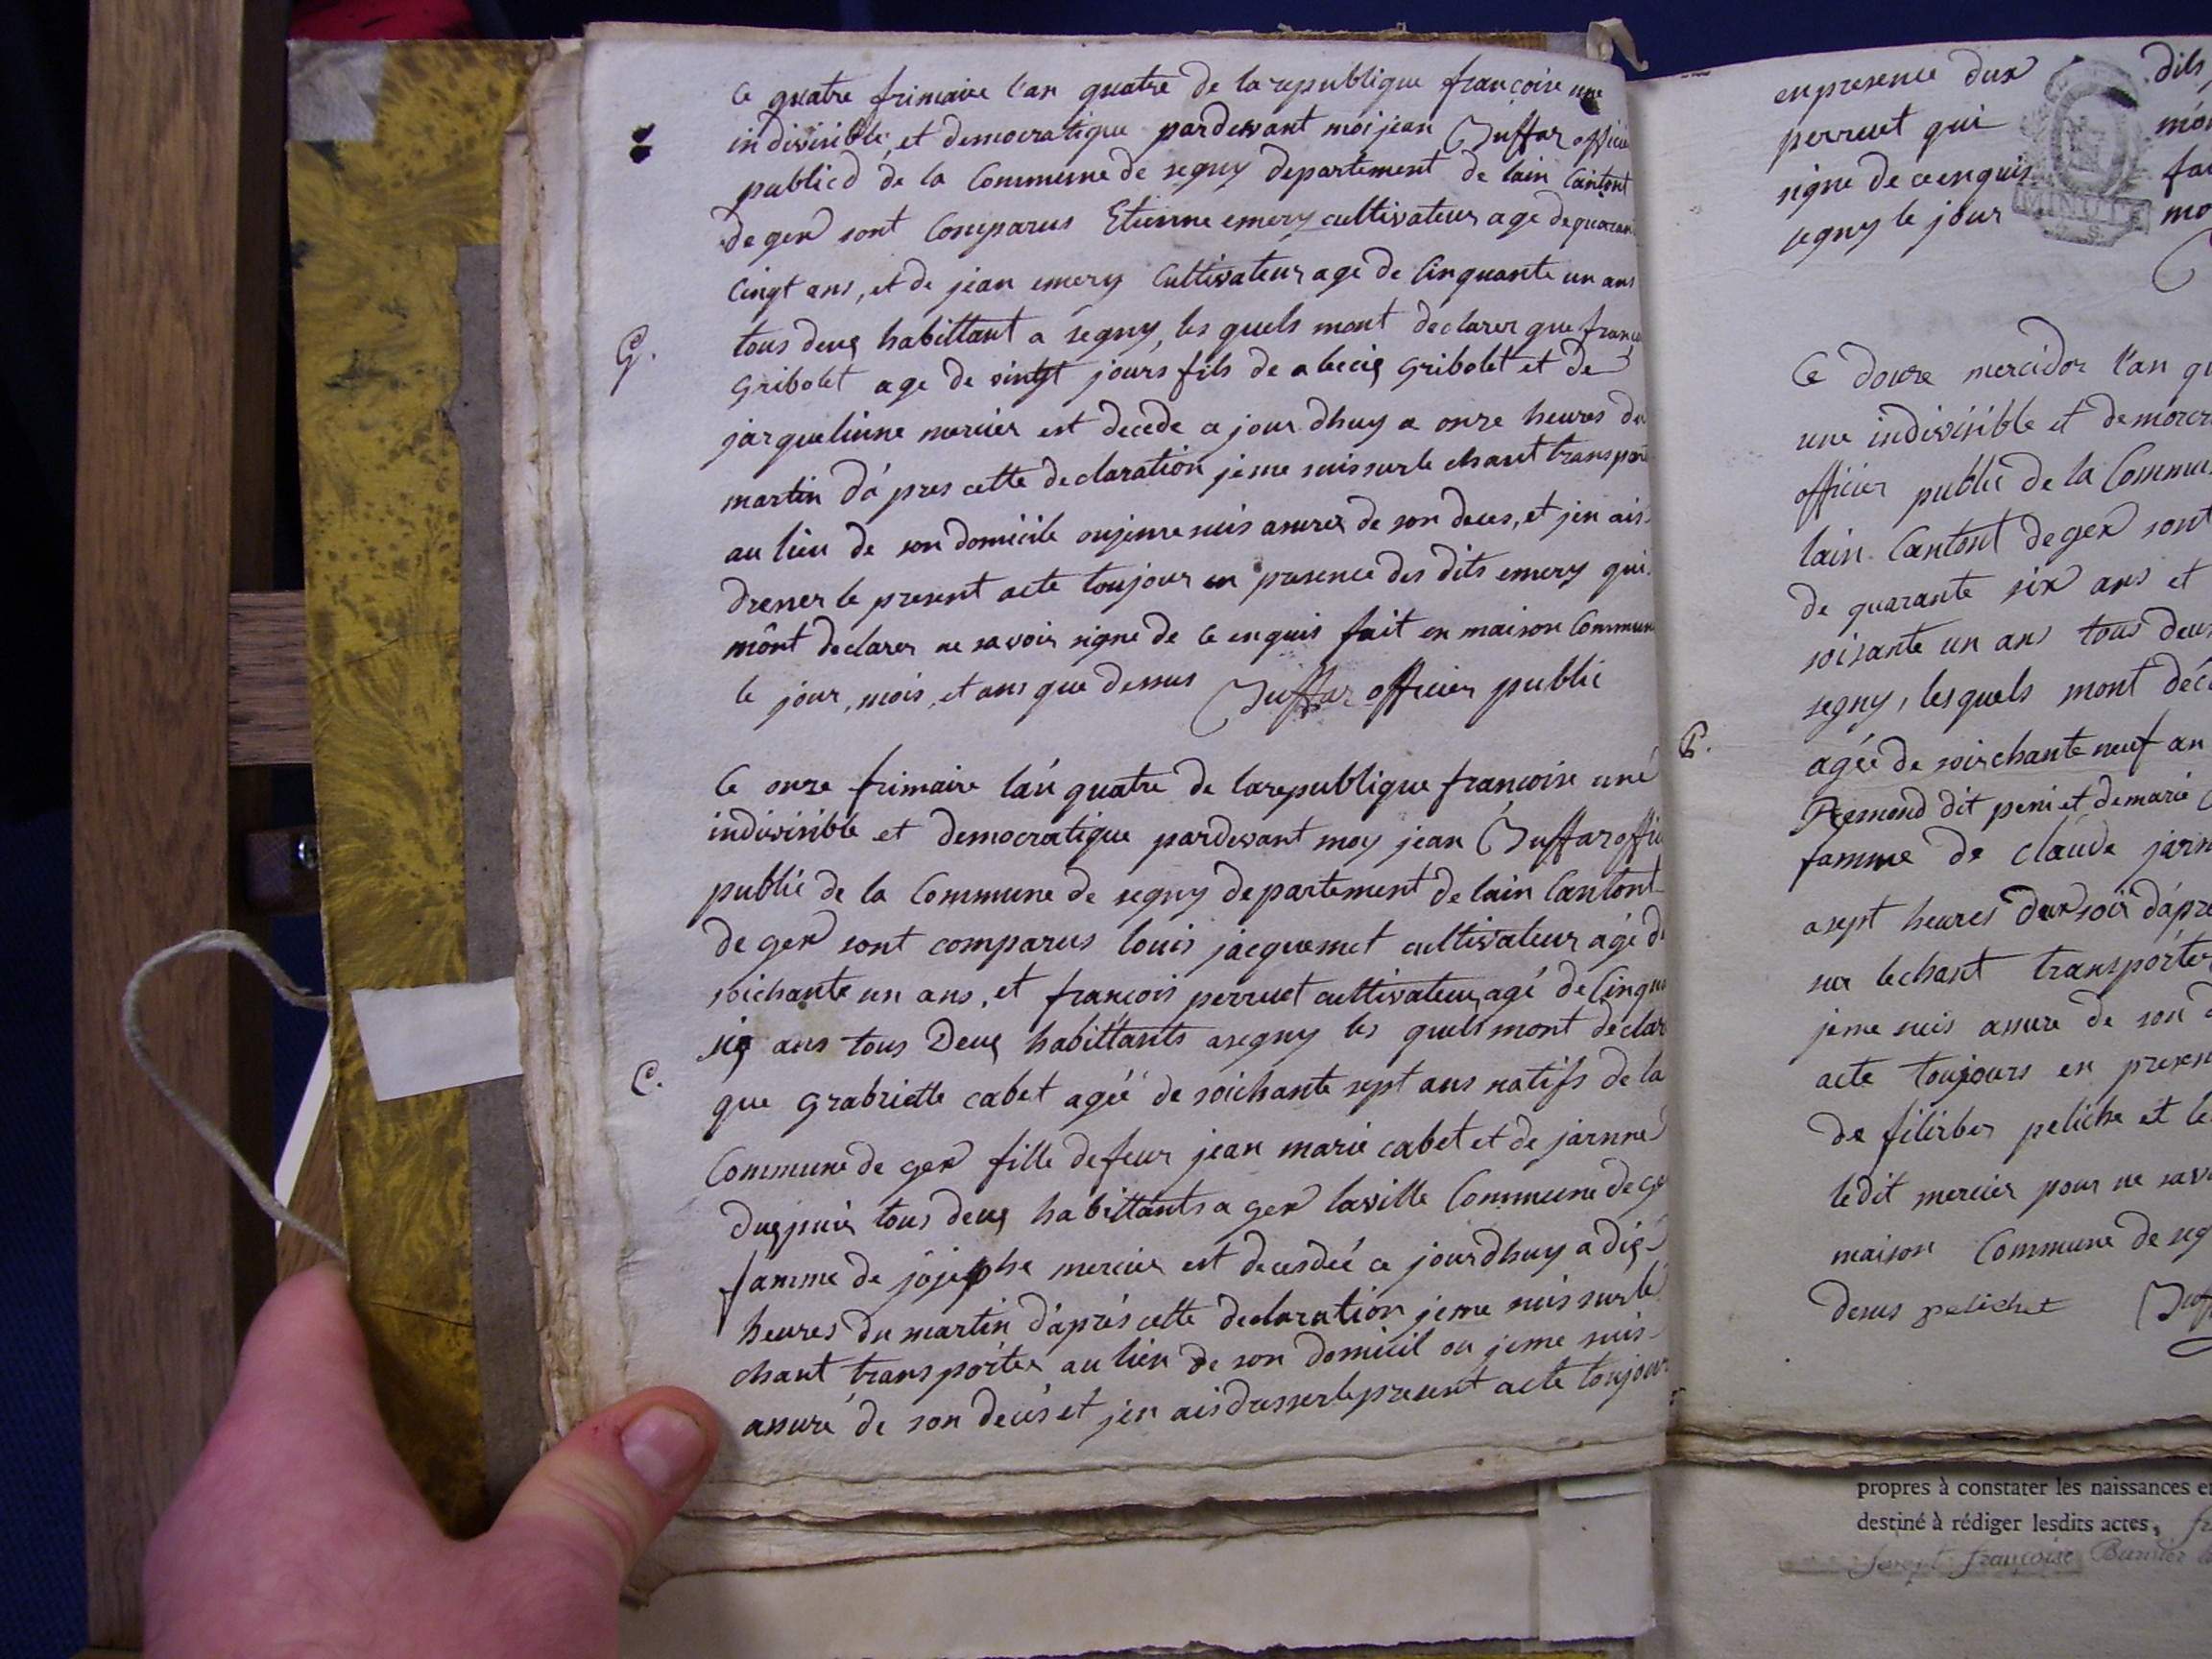 Ce quatre frimaire l'an quatre de la republique francoise une
indivisible, et democratique pardevant moi jean Buffaz officier
publicd de la Commune de segny departement de lain Cantont
de gex sont Comparus Etienne emery cultivateur age de quarant
Cingt ans, et de jean emery Cultivateur age de Cinquante un ans
tous deux habittant a segny, les quels mont declarer que franc
G.
Gribolet age de vingt jours fils de alecis Gribolet et de
jarquelinne mercier est decede a jour dhuy a onze heures du
martin dá pres cette declaration jeme suis sur le chant transport
au lieu de son domicile oujeme suis assurer de son deces, et jen ais
dresser le present acte toujour en presence des dits emery qui
mônt declarer ne savoir signe de ce enquis fait en maison Commun
le jour, mois, et ans que dessus Buffaz officier public
Ce onze frimaire lán quatre de larepublique francoise uné
indivisible et democratique pardevant moy jean Buffaz offic
public de la Commune de segny departement de lain Cantont
de gex sont comparus louis jacquemet cultivateur agé de
soichante un ans, et francois perruet cultivateur agé de Cinqu
six ans tous Deux habittants asegny les quels mont déclar
C.
que Grabriette cabet agéé de soichante sept ans natifs de la
Commune de gex fille defeur jean marie cabet et de jarnne
tous deux habittants a gex laville Commune de ge
famme de jojephe mercier est decesdéé ce jourdhuy a dix
heures du martin dáprés cette declaration jeme suis surle
chant transporter au lieu de son domicil ou jeme suis
assuré de son decés et jen ais dresserlepresent acte toujour
enpresence dux dits
perruet qui
signe de ceenquis
segny le jour
MINUTE
Ce douze mercidor l'an qu
une indivisible et democr
officier public de la Commu
lain Cantont degex sont
de quarante six ans et
soisante un ans tous deux
segny, lesquels mont déc
P.
agéé de soischante neuf an
Remond dit peni et demarie
famme de claude jarn
asept heures dux soir dápré
sur lechant transpórter
jeme suis assure de son d
acte toujours en presen
de filirber peliche et le
ledit mercier pour ne sav
maison Commune de seg
desus pelichet Buf
propres à constater les naissances e
destiné à rédiger lesdits actes, fr
françoise